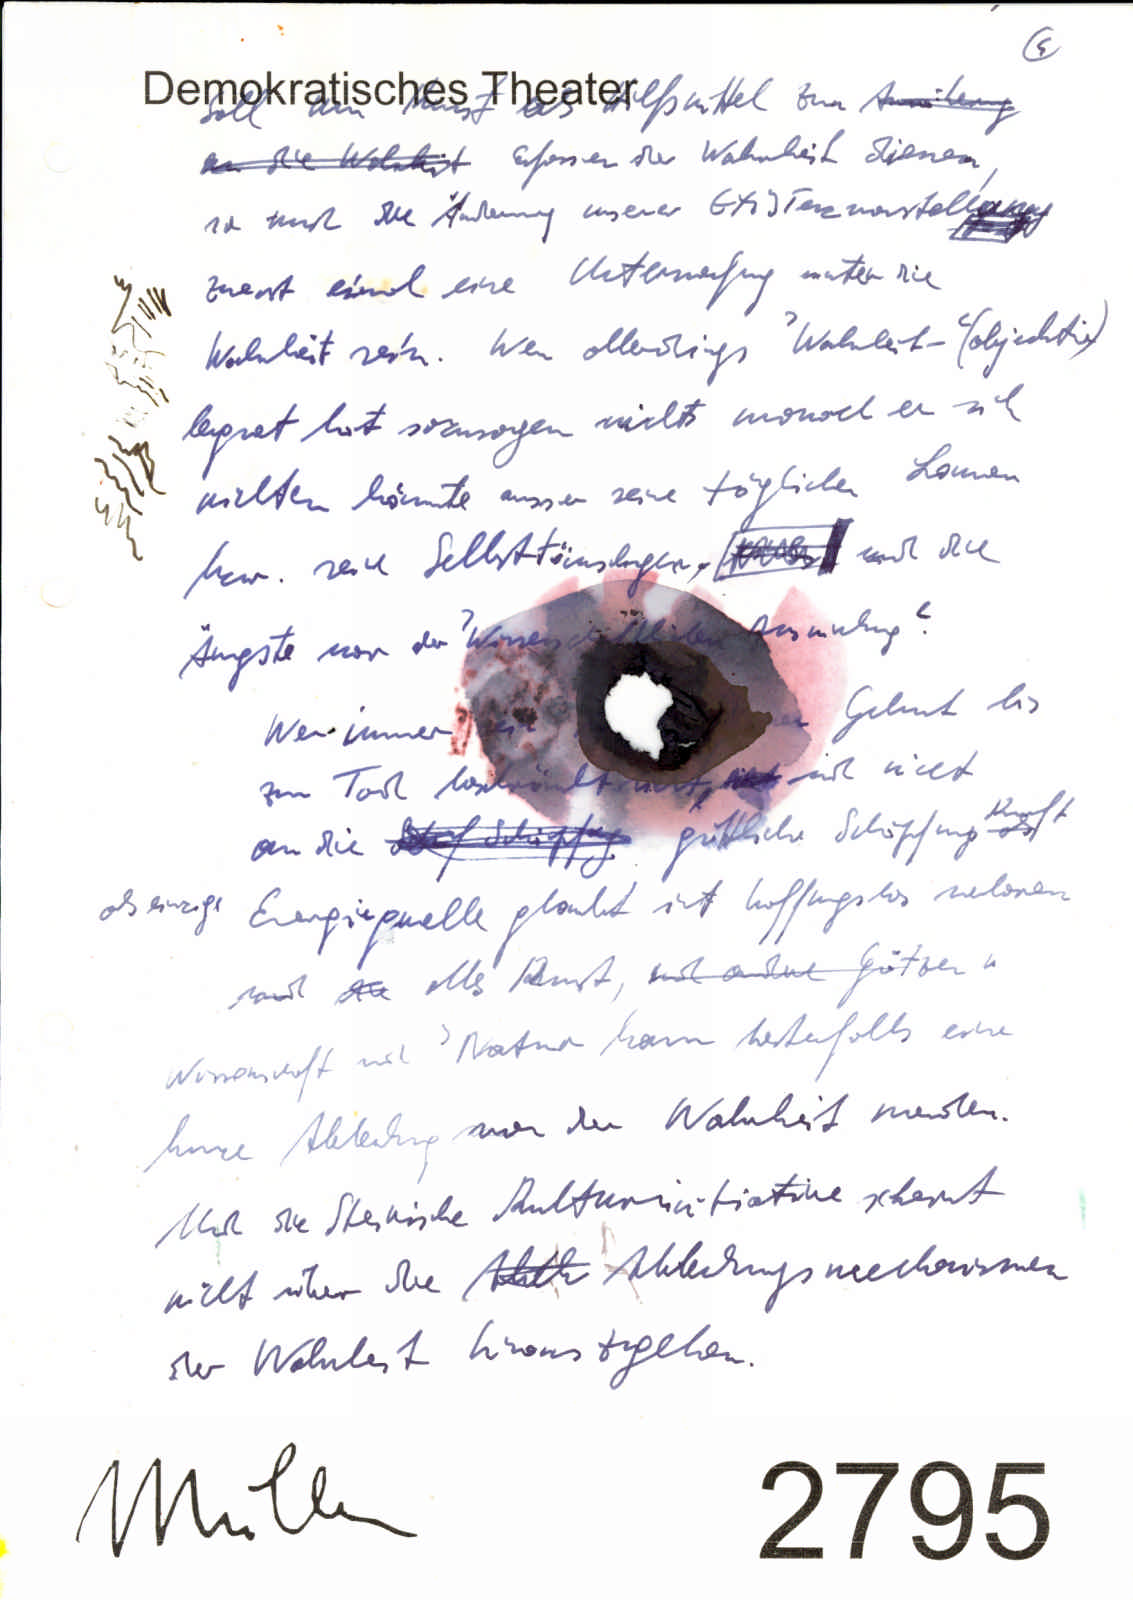 Demokratisches Theater
Soll nun Kunst als Hilfsmittel zum
Erfassen der Wahrheit dienen,
so muß die Änderung unserer Existenzvorstellung
zuerst einmal eine Unterwerfung unter die
Wahrheit sein. Wer allerdings "Wahrheit" (objektiv)
leugnet hat sozusagen nichts wonach er sich
richten könnte ausser seine täglichen Launen
bzw. seine Selbsttäuschungen, und die
Ängste vor der "Wissenschaftlichen Ausrichtung".
Wer immer Geburt bis
zum Tod beschränkt und nicht
an die göttliche Schöpfungskraft
als einzige Energiequelle glaubt ist hoffnungslos verloren
und alles Kunst, und andere Götzen
Wissenschaft und "Natur" kann bestenfalls eine
kurze Ableitung von der Wahrheit werden.
Und die Steirische Kulturinitiative scheint
nicht über die Ableitungsmechanismen
der Wahrheit hinauszugehen.
Müller
2795